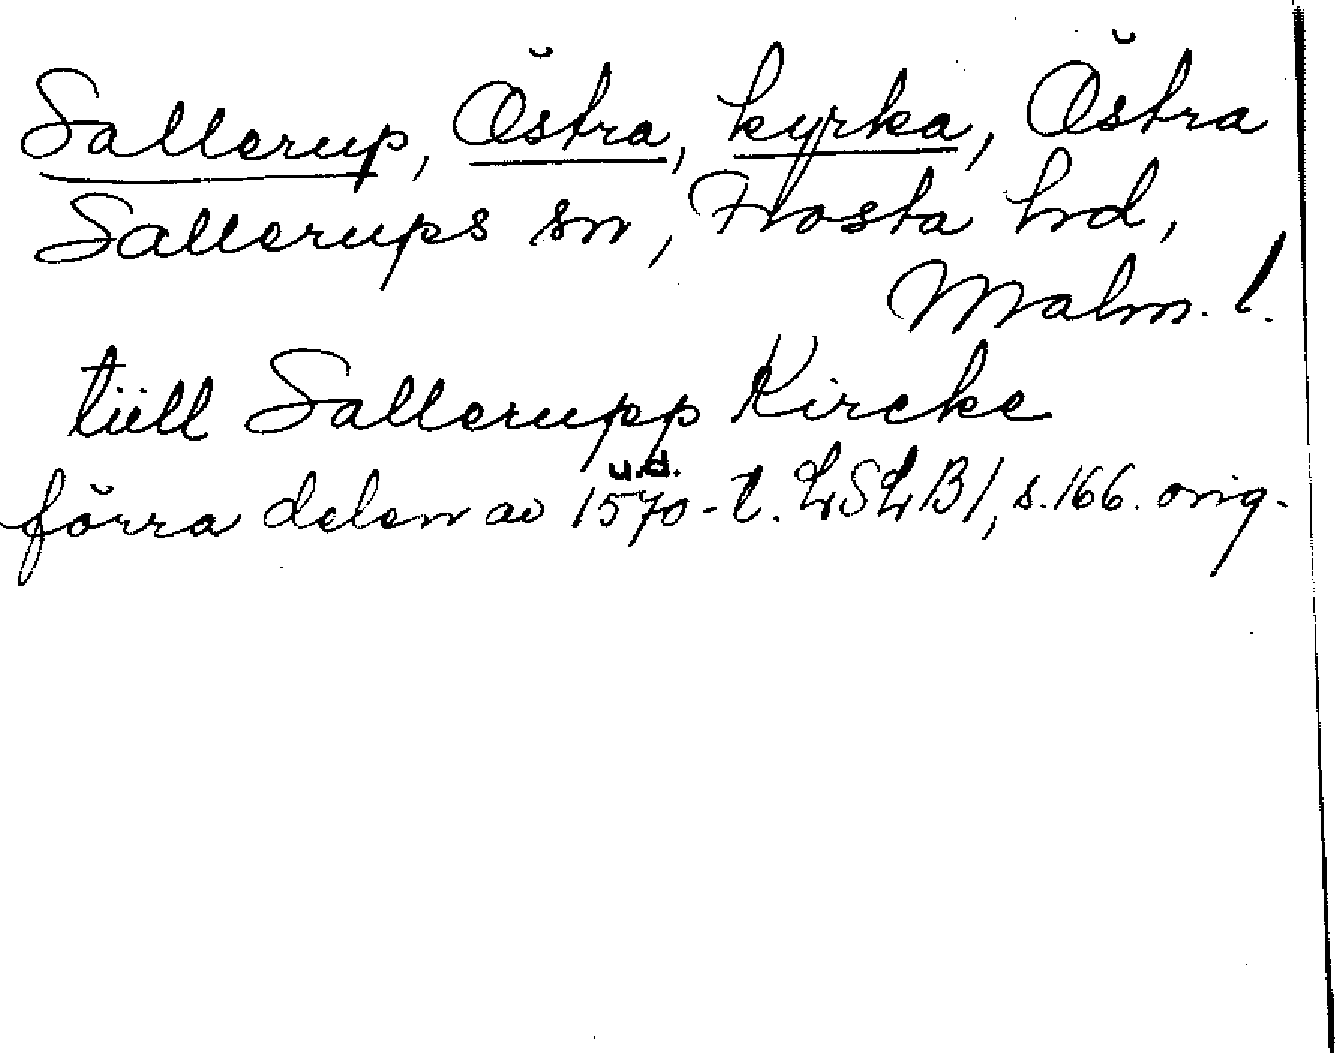 Sallerup, Östra, kyrka, Östra
Sallerups sn, Frosta hd,
Malm. l.
tiill Sallerupp Kircke
u.d.
förra delen av 1570-t. LSLB1, s. 166. orig.